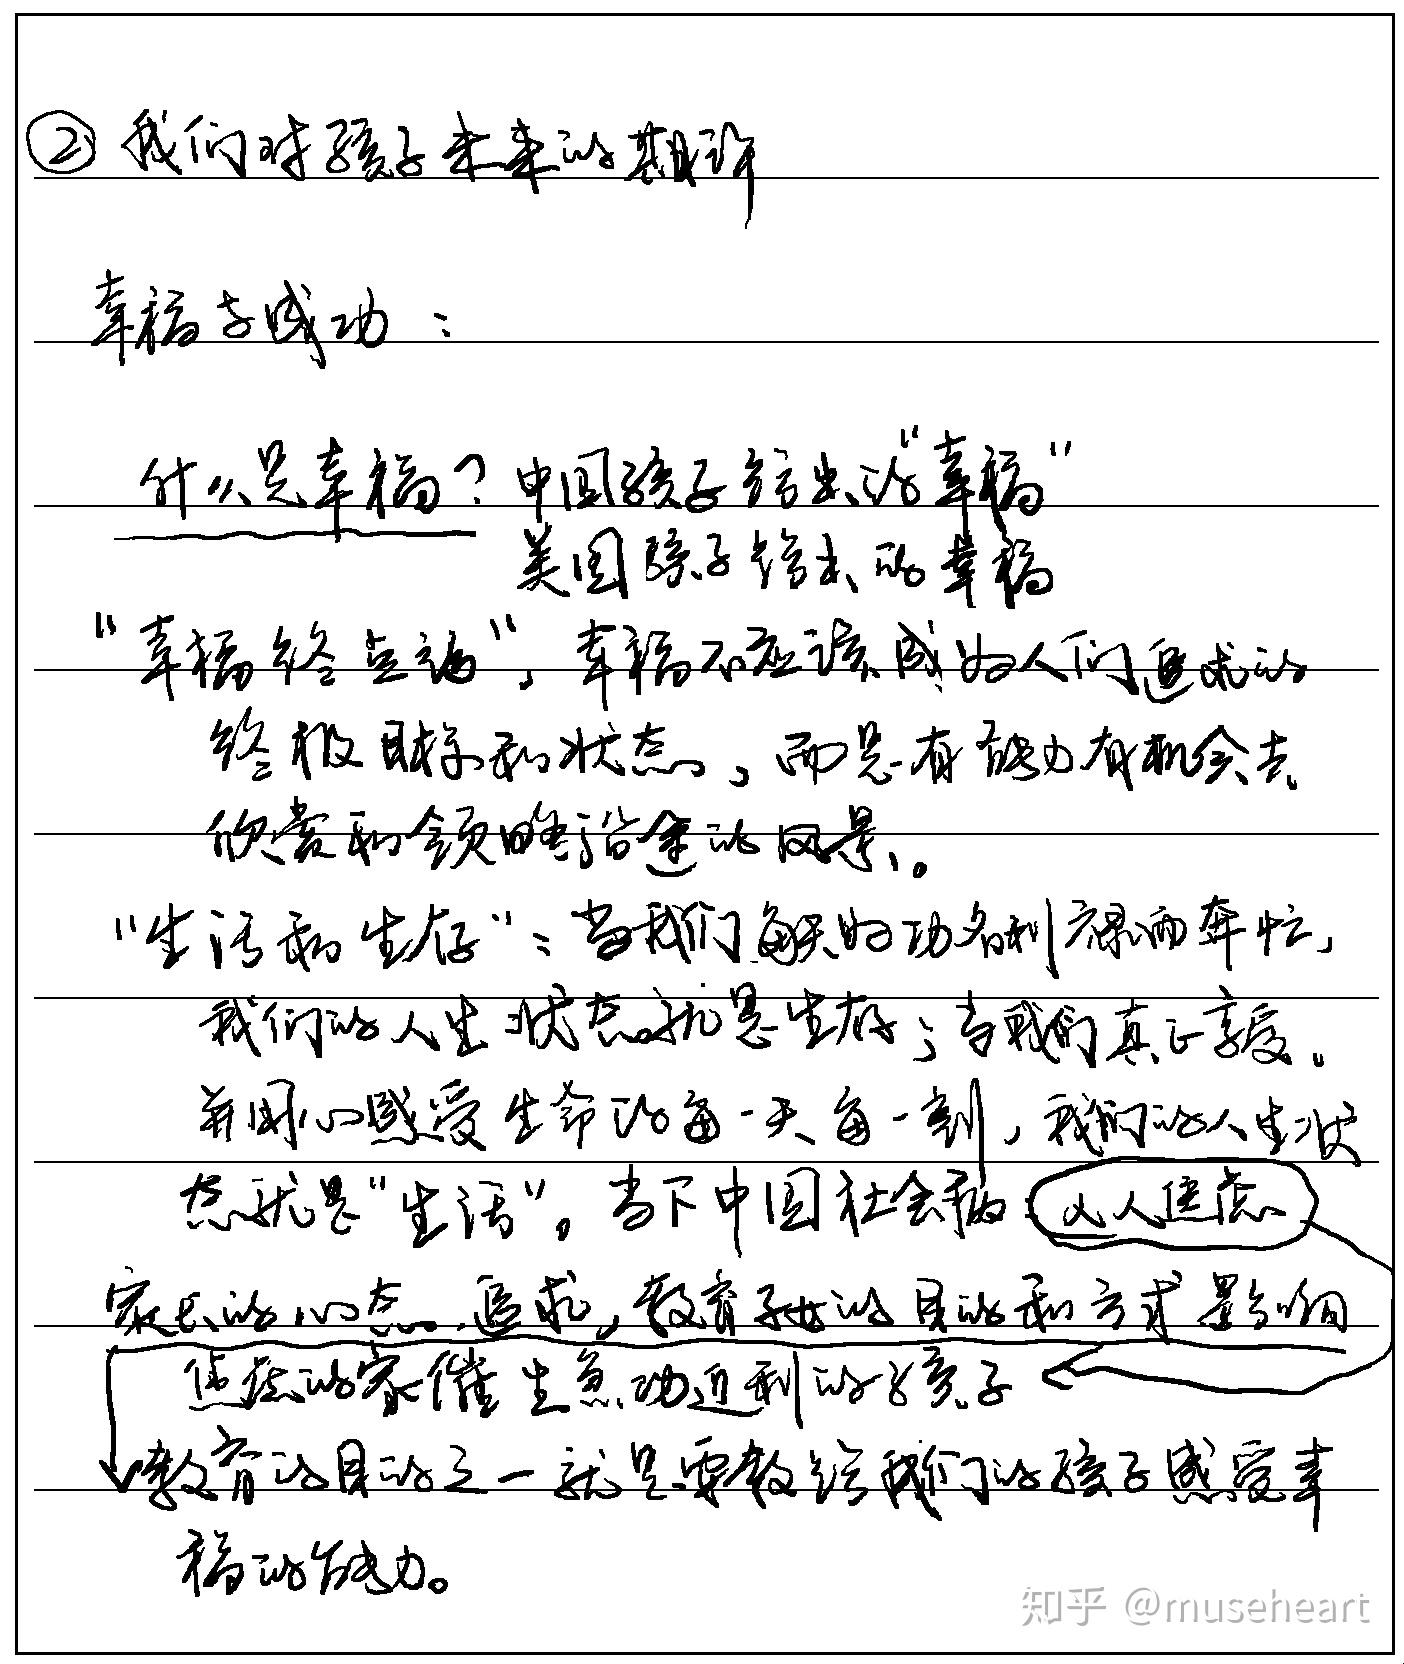 ② 我们对孩子未来的期许
幸福与成功：
什么是幸福？中国孩子给出的“幸福”
美国孩子给出的幸福
“幸福终点站”，幸福不应该成为人们追求的
终极目标和状态，而是有能力有机会去
欣赏和领略沿途的风景。
“生活和生存”：当我们每天为功名利禄而奔忙，
我们的人生状态就是生存；当我们真正享受、
并用心感受生命的每一天每一刻，我们的人生状
态就是“生活”。当下中国社会病 人人焦虑
家长的心态、追求，教育子女的目的和方式影响
焦虑的家催生急功近利的孩子
教育的目的之一就是要教给我们的孩子感受幸
福的能力。
知乎 @museheart